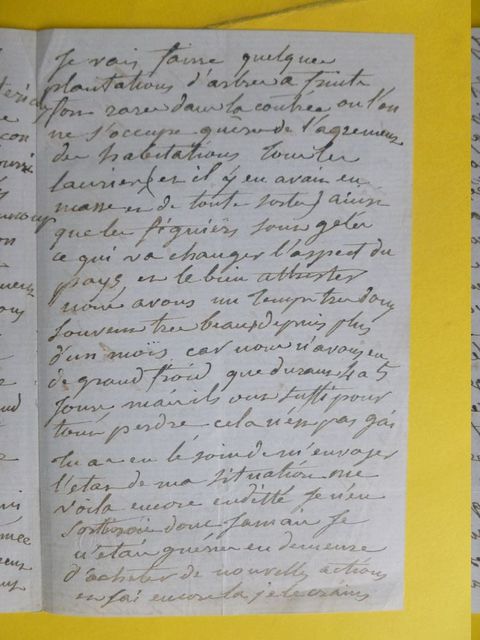 Je vais faire quelques
plantations d'arbres a fruits
fort rares dans la contrée ou l'on
ne s'occupe guère de l'agrement
des habitations tous les
lauriers (et il y en avait en
masse et de toute sorte) ainsi
que les figuiers sont gelés
ce qui va changer l'aspect du
pays, et le bien attrister
nous avons un temps tres doux
souvent tres beau depuis plus
d'un moïs car nous n'avons eu
de grand froid que durant 4 a 5
jours mais ils ont suffi pour
tout perdre cela n'est pas gai
tu as eu le soin de m'envoyer
l'etat de ma situation me
voila encore endetté je n'en
sortirai donc jamais je
n'etais guère en demeure
d'acheter de nouvelles actions